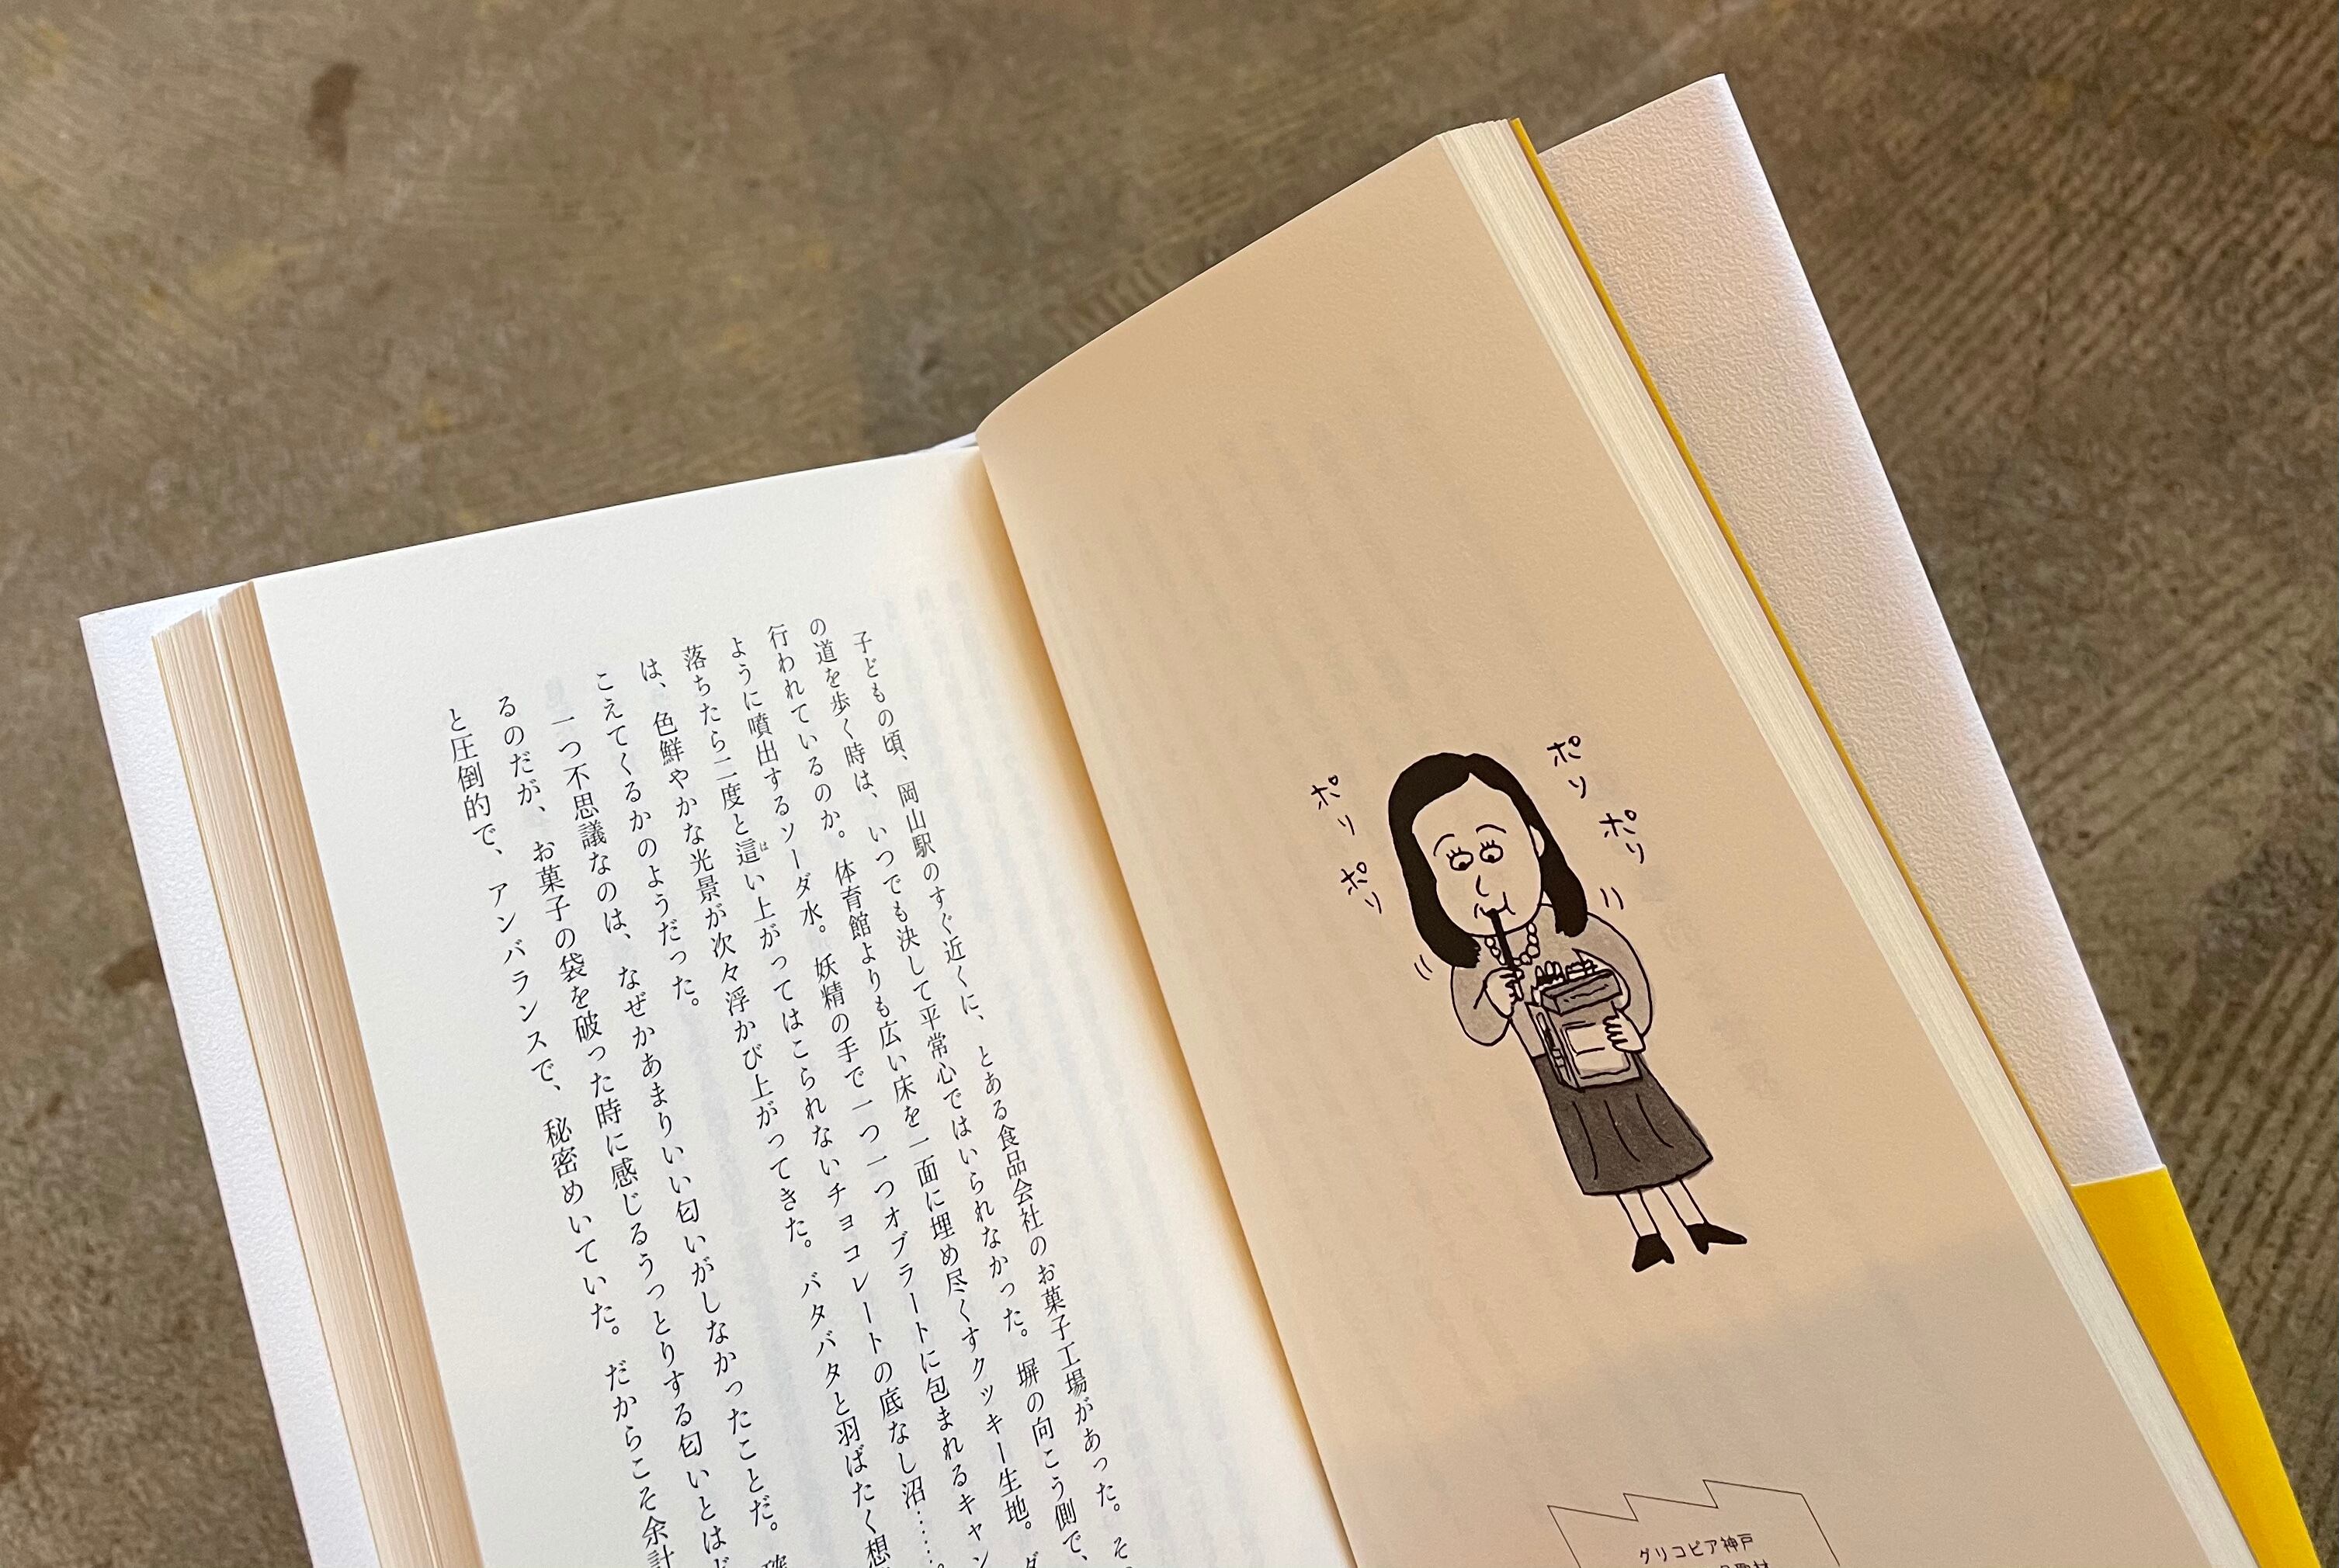 ポリ
ポリ
ポリ
ポリ
グリコピア神戸
子どもの頃、岡山駅のすぐ近くに、とある食品会社のお菓子工場があった。そ
の道を歩く時は、いつでも決して平常心ではいられなかった。塀の向こう側で、
行われているのか。体育館よりも広い床を一面に埋め尽くすクッキー生地。ダ
ように噴出するソーダ水。妖精の手で一つ一つオブラートに包まれるキャン
落ちたら二度と這い上がってはこられないチョコレートの底なし沼……。
は、色鮮やかな光景が次々浮かび上がってきた。バタバタと羽ばたく想
こえてくるかのようだった。
一つ不思議なのは、なぜかあまりいい匂いがしなかったことだ。確
るのだが、お菓子の袋を破った時に感じるうっとりする匂いとは
と圧倒的で、アンバランスで、秘密めいていた。だからこそ余計